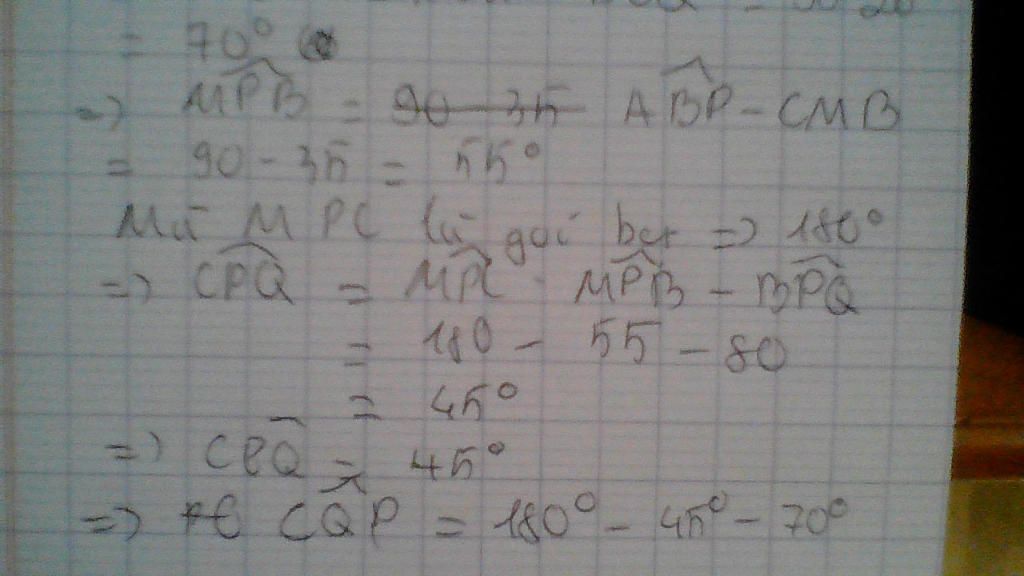 = 70°
=> MPB = 90 - 35 ABP - CMB
= 90 - 35 = 55°
Mà MPC là gói bet => 180°
=> CPQ = MPC - MPB - BPQ
= 180 - 55 - 80
= 45°
=> CPQ = 45°
=> CQP = 180° - 45° - 70°